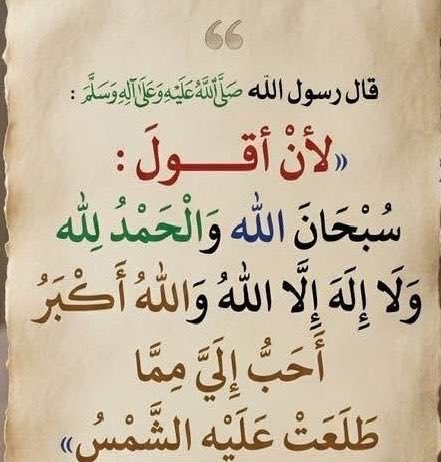 قال رسول الله صَلَّى اللَّهُ عَلَيْهِ وَعَلَى آلِهِ وَسَلَّمَ :
«لأنْ أقـــولَ :
سُبْحَانَ الله وَالْحَمْدُ لِلَّه
وَلَا إِلَهَ إِلَّا اللهُ وَاللهُ أَكْبَرُ
أَحَبُّ إِلَيَّ مِمَّا
طَلَعَتْ عَلَيْهِ الشَّمْسُ»